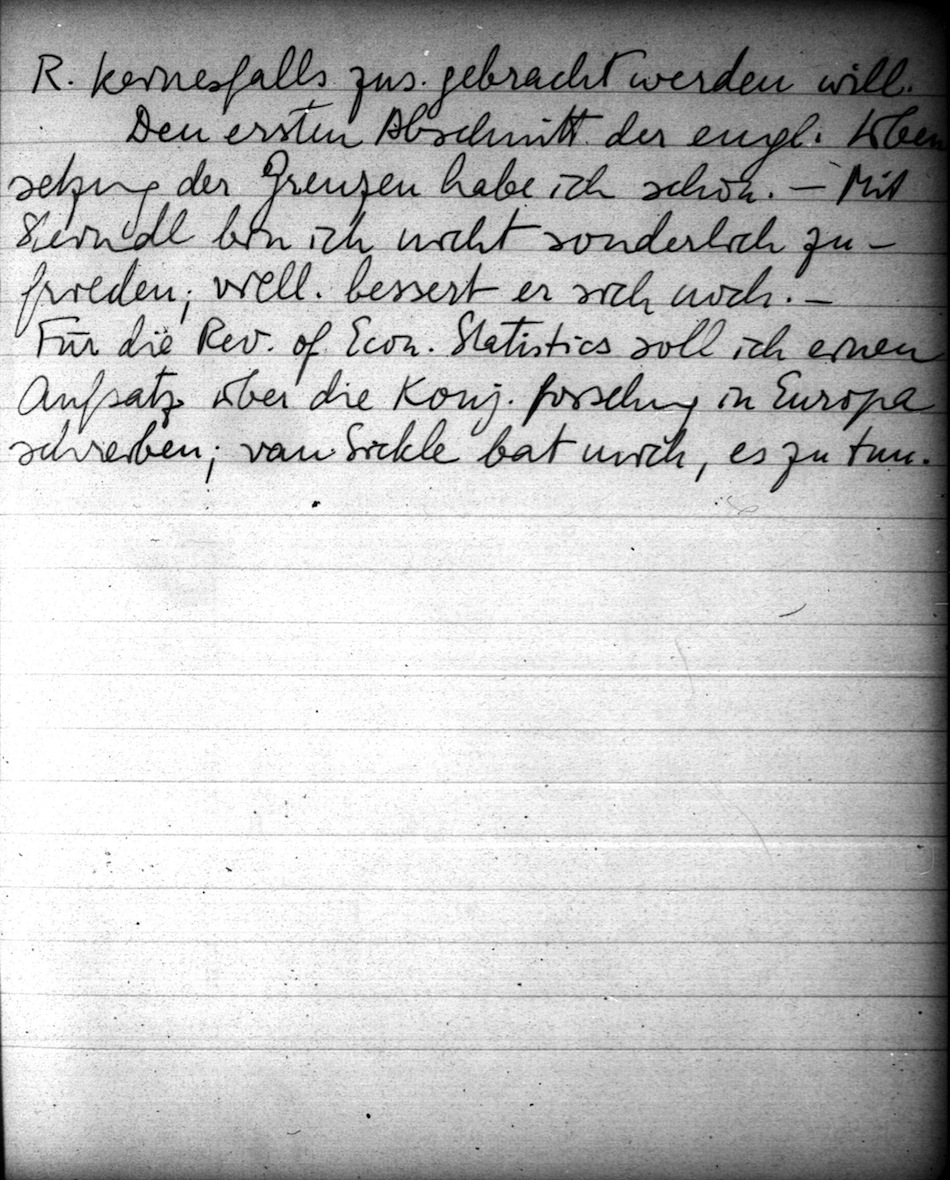 R. keinesfalls zus. gebracht werden will.
Den ersten Abschnitt der engl. Über
setzung der Grenzen habe ich schon. – Mit
bin ich nicht sonderlich zu –
frieden; viell. bessert er sich noch. –
Für die Rev. of Econ. Statistics soll ich einen
Aufsatz über die Konj. forschung in Europa
schreiben; van Sickle bat mich, es zu tun.